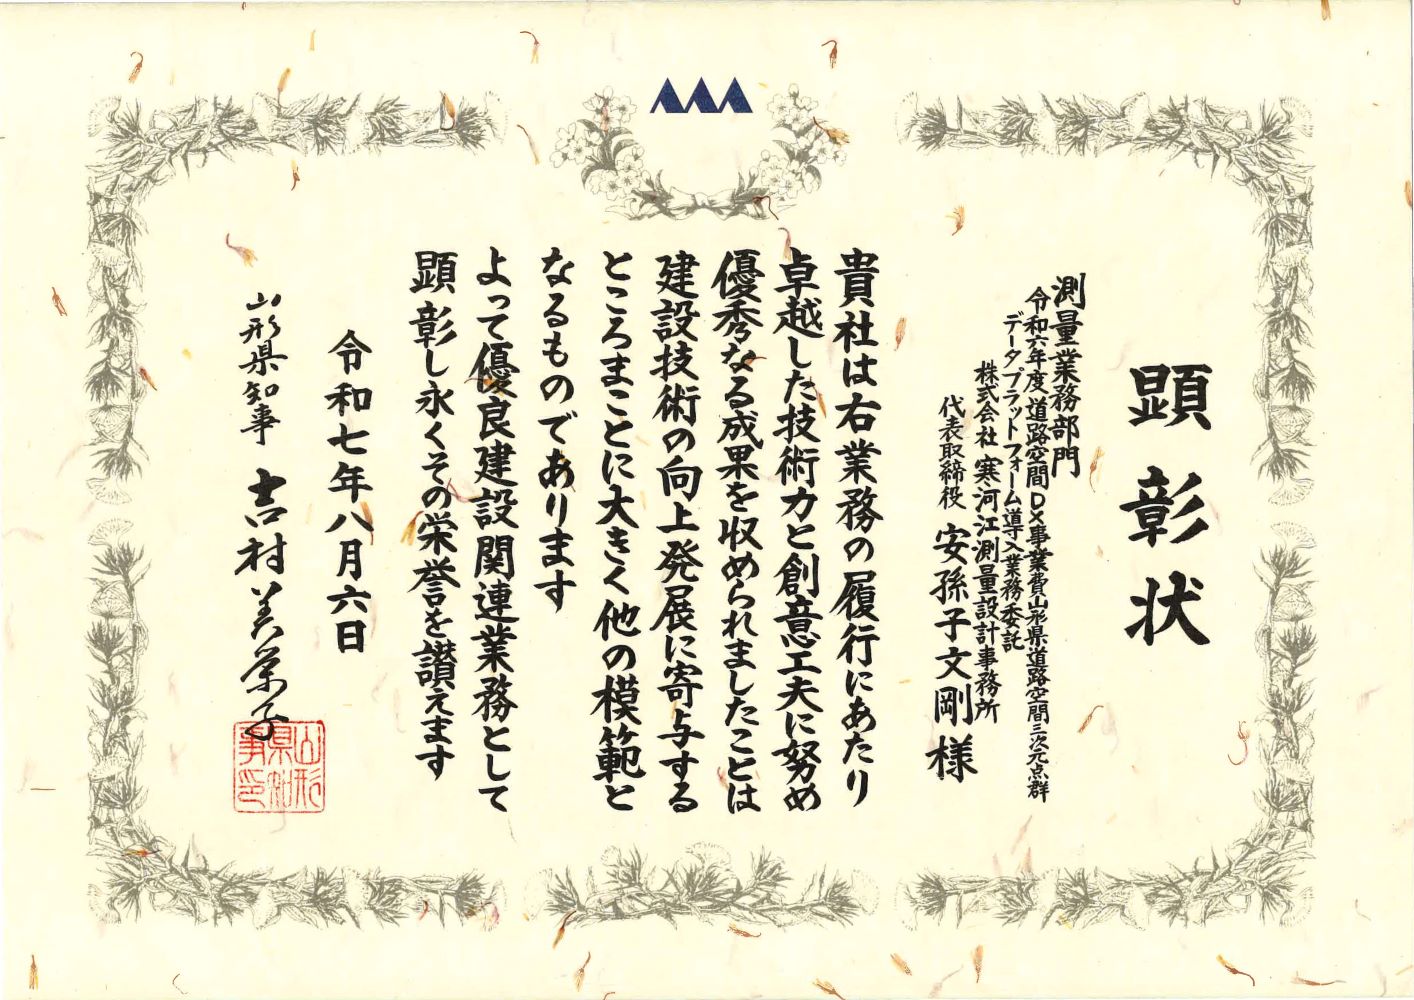 顕彰状
測量業務部門
令和六年度 道路空間DX事業費山形県道路空間三次元点群
データプラットフォーム導入業務委託
株式会社 寒河江測量設計事務所
代表取締役 安孫子文剛 様
貴社は右業務の履行にあたり
卓越した技術力と創意工夫に努め
優秀なる成果を収められましたことは
建設技術の向上発展に寄与する
ところまことに大きく他の模範と
なるものであります
よって優良建設関連業務として
顕彰し永くその栄誉を讃えます
令和七年八月六日
山形県知事 吉村美栄子
山形県知事印